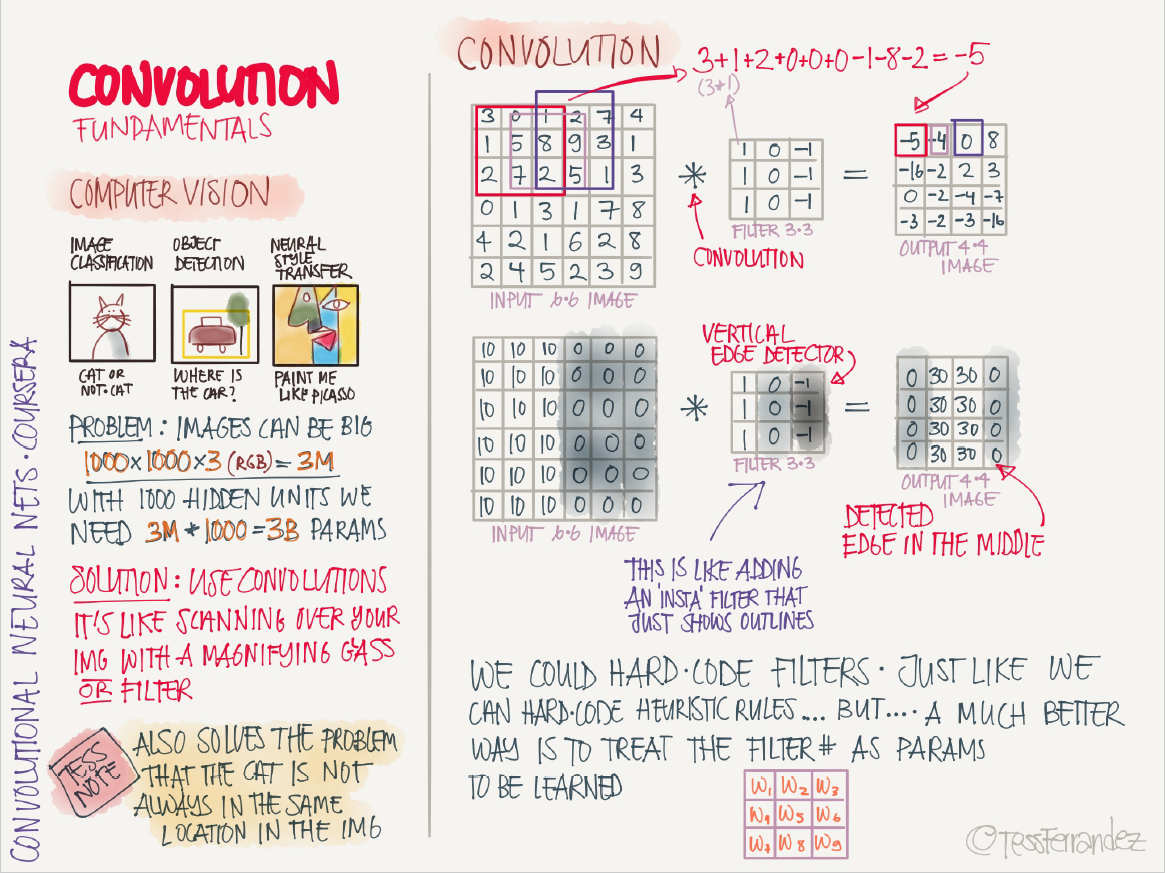 CONVOLUTION
FUNDAMENTALS
COMPUTER VISION
IMAGE
CLASSIFICATION
CAT OR
NOT-CAT
OBJECT
DETECTION
WHERE IS
THE CAR?
NEURAL
STYLE
TRANSFER
PAINT ME
LIKE PICASSO
PROBLEM: IMAGES CAN BE BIG
1000×1000×3 (RGB) = 3M
WITH 1000 HIDDEN UNITS WE
NEED 3M * 1000 = 3B PARAMS
SOLUTION: USE CONVOLUTIONS
IT'S LIKE SCANNING OVER YOUR
IMG WITH A MAGNIFYING GASS
OR FILTER
TESS
NOTE
ALSO SOLVES THE PROBLEM
THAT THE CAT IS NOT
ALWAYS IN THE SAME
LOCATION IN THE IMG
CONVOLUTIONAL NEURAL NETS · COURSERA
CONVOLUTION
3+1+2+0+0+0-1-8-2 = -5
(3*1)
3 0 1 2 7 4
1 5 8 9 3 1
2 7 2 5 1 3
0 1 3 1 7 8
4 2 1 6 2 8
2 4 5 2 3 9
INPUT 6·6 IMAGE
*
CONVOLUTION
1 0 -1
1 0 -1
1 0 -1
FILTER 3·3
=
-5 -4 0 8
-16 -2 2 3
0 -2 -4 -7
-3 -2 -3 -16
OUTPUT 4·4
IMAGE
10 10 10 0 0 0
10 10 10 0 0 0
10 10 10 0 0 0
10 10 10 0 0 0
10 10 10 0 0 0
10 10 10 0 0 0
INPUT 6·6 IMAGE
*
VERTICAL
EDGE DETECTOR
1 0 -1
1 0 -1
1 0 -1
FILTER 3·3
=
0 30 30 0
0 30 30 0
0 30 30 0
0 30 30 0
OUTPUT 4·4
IMAGE
DETECTED
EDGE IN THE MIDDLE
THIS IS LIKE ADDING
AN 'INSTA' FILTER THAT
JUST SHOWS OUTLINES
WE COULD HARD·CODE FILTERS · JUST LIKE WE
CAN HARD·CODE HEURISTIC RULES.... BUT.... A MUCH BETTER
WAY IS TO TREAT THE FILTER# AS PARAMS
TO BE LEARNED
W1 W2 W3
W4 W5 W6
W7 W8 W9
©TessFerrandez